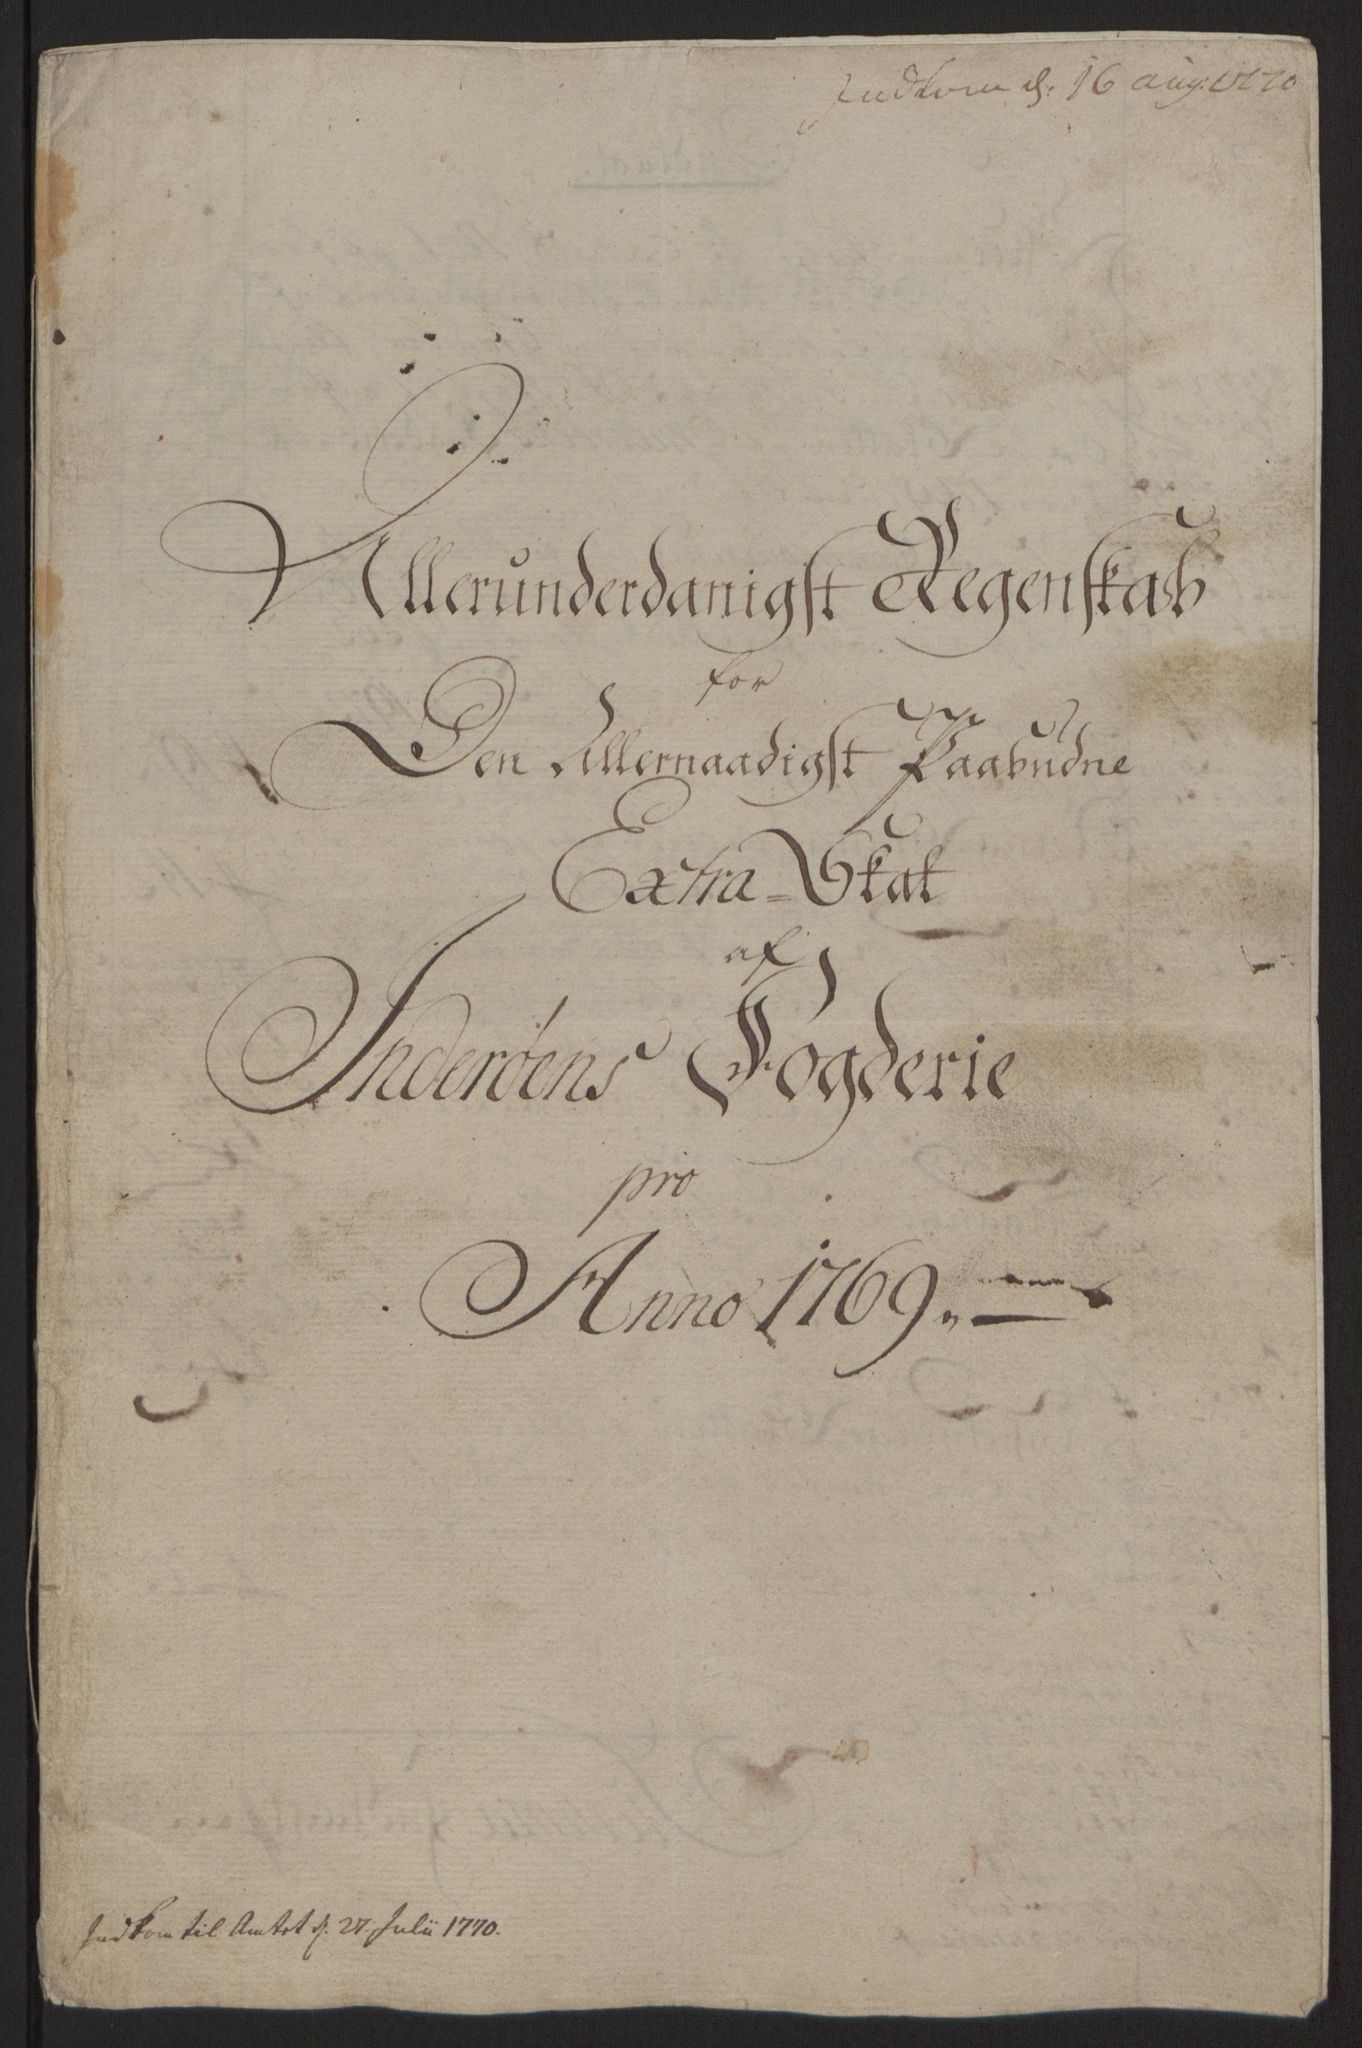 Indkom d. 16 aug. 1770
Allerunderdanigst Regenskab
for
Den Allernaadigst Paabudne
Extra-Skat
af
Inderöens Fogderie
pro
Anno 1769.
Indkom til Amtet d. 27. Julii 1770.